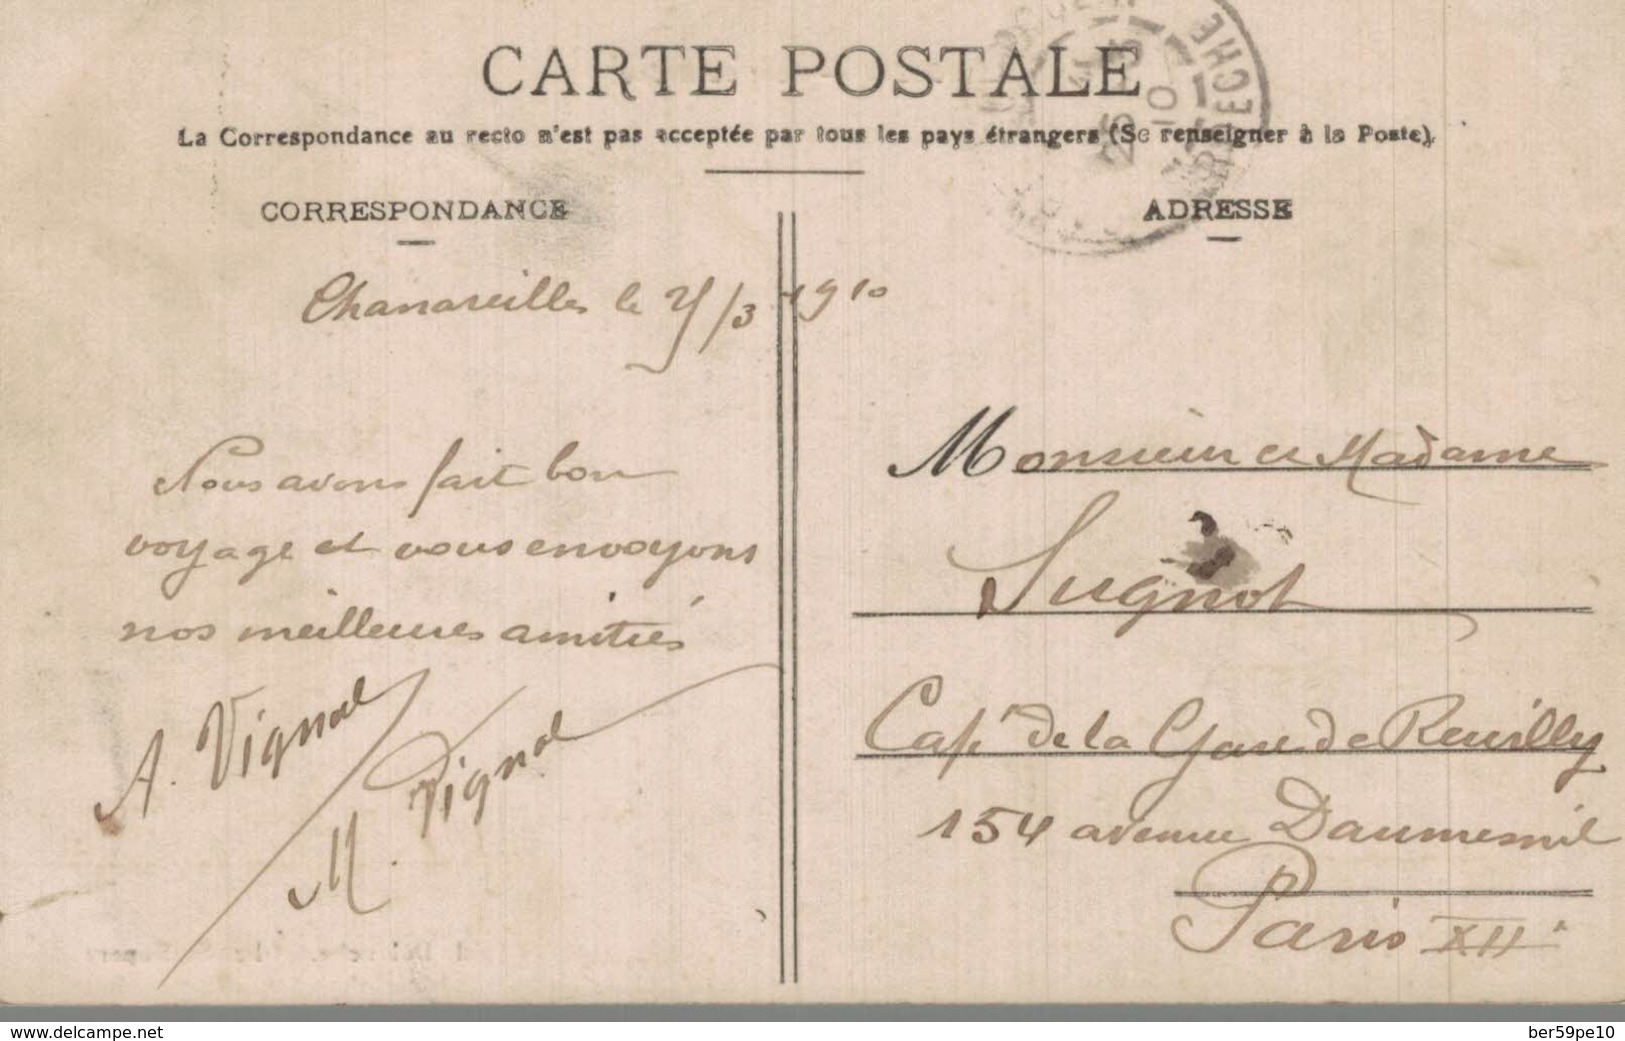 CARTE POSTALE
La Correspondance au recto n'est pas acceptée par tous les pays étrangers (Se renseigner à la Poste).
CORRESPONDANCE
ADRESSE
Chanareilles le /3 1910
Nous avons fait bon
voyage et vous envoyons
nos meilleures amitiés
A. Vignal
M. Vignal
Monsieur et Madame
Sugnot
Café de la Gare de Reuilly
154 avenue Daumesnil
Paris XII
ARDECHE
26
10
www.delcampe.net
ber59pe10